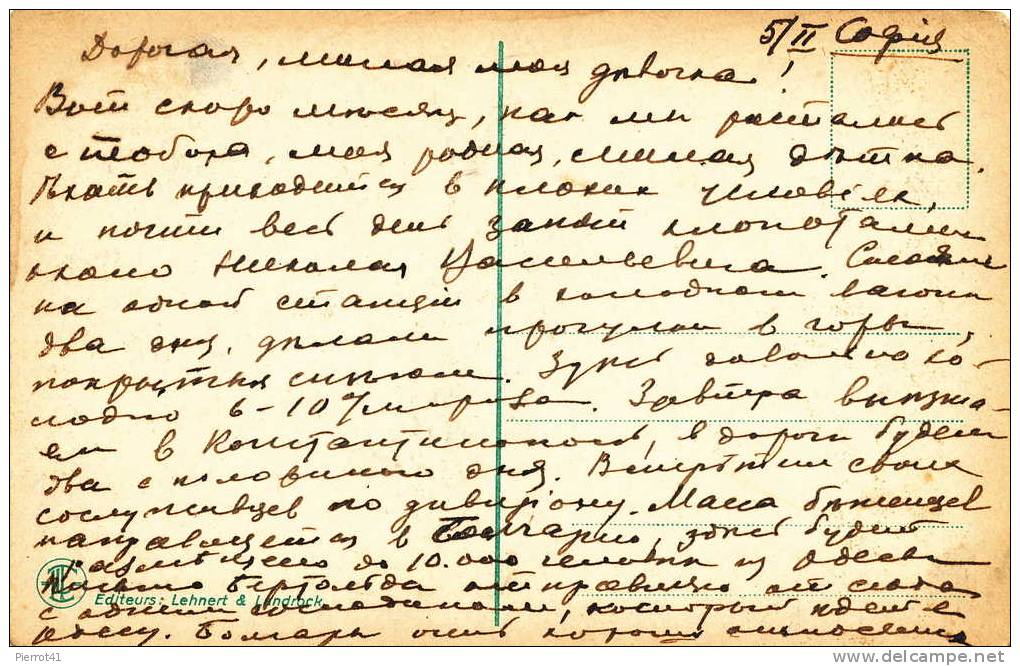 5/II София
Дорогая, милая моя дѣвочка!
Вот скоро мѣсяц, как мы растались
с тобою, моя родная, милая дѣтка.
Ѣхать приходится в плохих условіях,
и почти весь день занят хлопотами
около Николая
на одной станціи в холодном вагонѣ
два дня, дѣлали прогулки в горы,
покрытыя снѣгом. Здѣсь довольно хо-
лодно 6-10° мороза. Завтра выѣзжа-
ем в Константинополь, в дороге будем
два с половиною дня. Встрѣтил своих
сослуживцев по дивизіону. Масса бѣженцев
направляется в Болгарію, здѣсь будет
размѣщено до 10.000 человѣк из Одессы
Письмо отправляю
с одним который идет в
Одессу. Болгары очень хорошо
Editeurs: Lehnert & Landrock
Pierrot41
delcampe.net